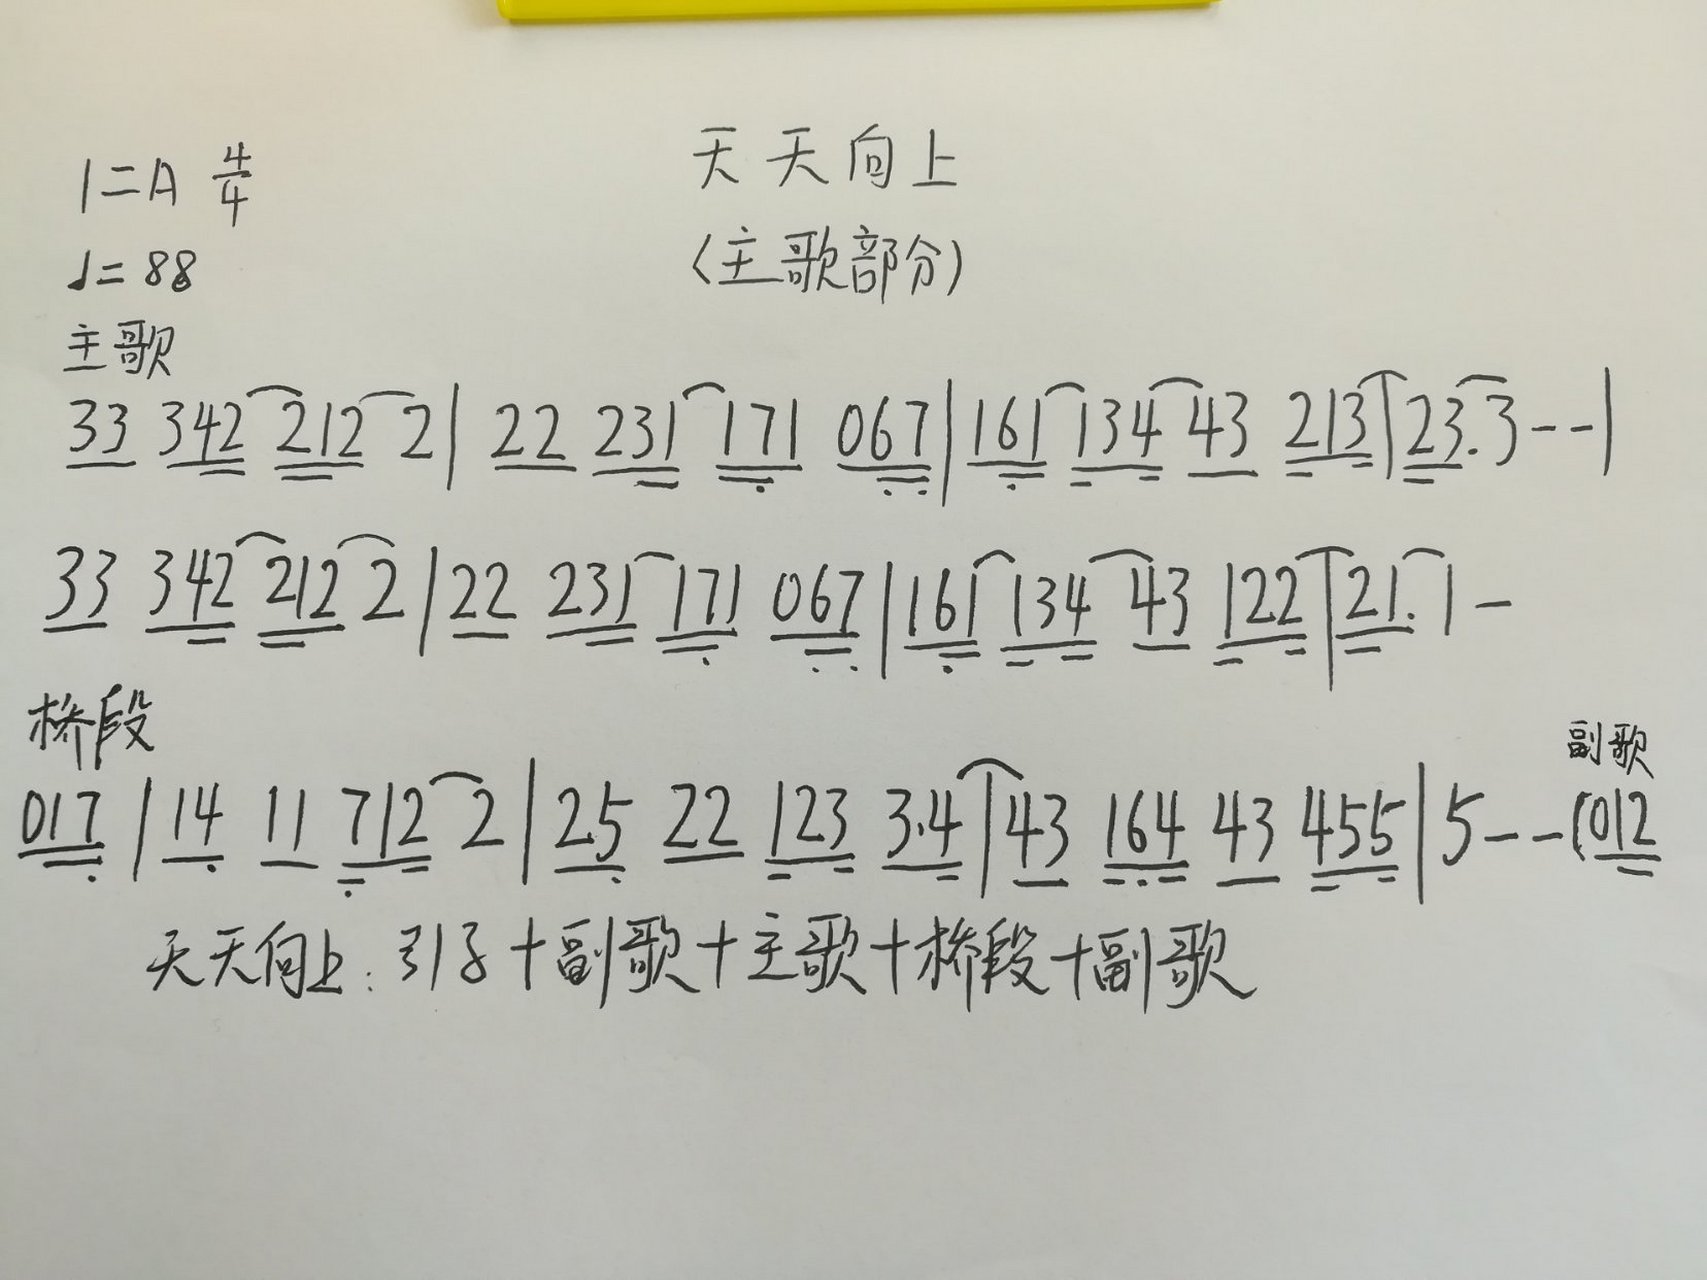 天天向上
1=A 4/4
(主歌部分)
♩=88
主歌
33 342 212 2 | 22 231 171 067 | 161 134 43 213 | 23. 3 - - |
33 342 212 2 | 22 231 171 067 | 161 134 43 122 | 21. 1 -
桥段
副歌
017 | 14 11 712 2 | 25 22 123 3.4 | 43 164 43 455 | 5 - - (012
天天向上: 引子+副歌+主歌+桥段+副歌